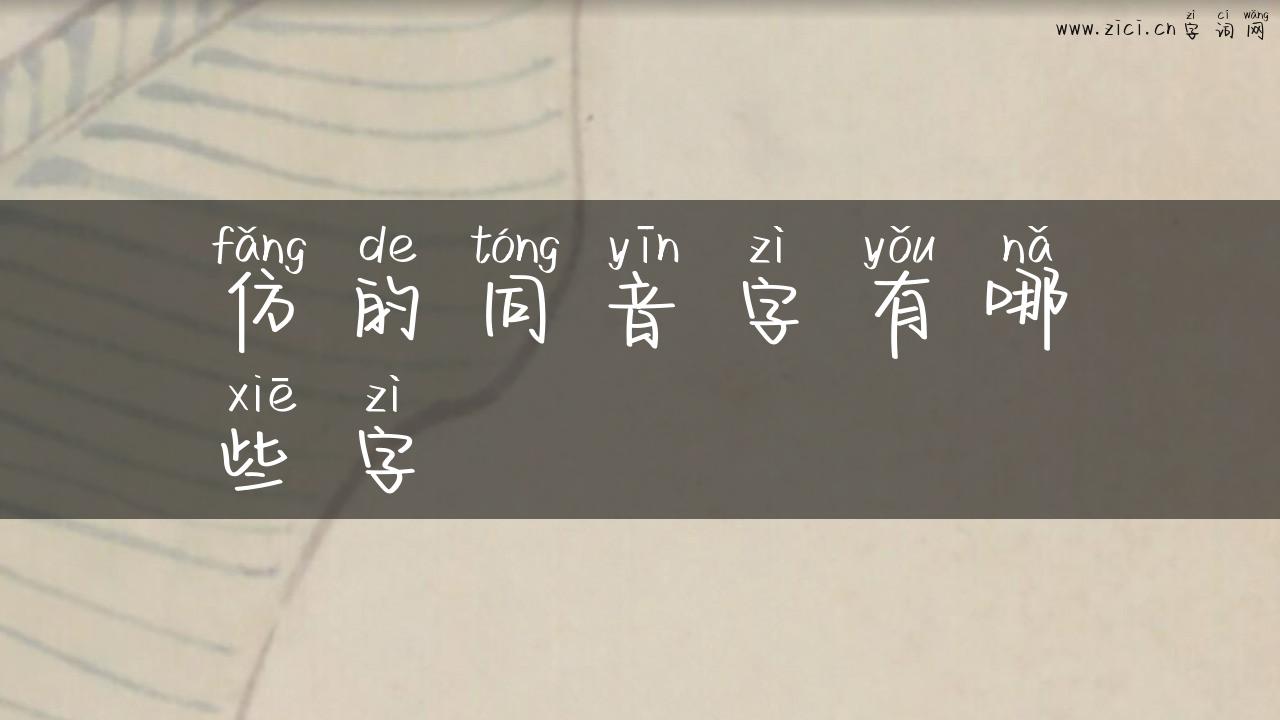 zì cí wǎng
www.zici.cn 字 词 网
fǎng de tóng yīn zì yǒu nǎ
仿 的 同 音 字 有 哪
xiē zì
些 字